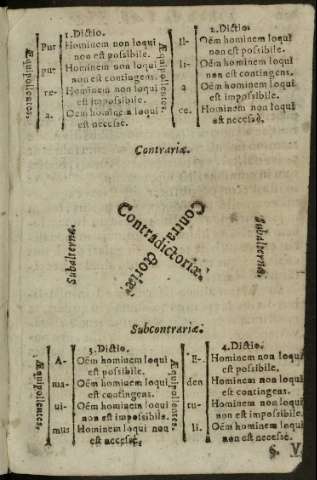 1. Dictio.
Æquipollentes.
Pur Hominem non loqui
non est possibile.
pu- Hominem non loqui
non est contingens.
re- Hominem non loqui
est impossibile.
a. Oem hominem loqui
est necesse.
Æquipollentes.
2. Dictio.
Il- Oém hominem loqui
non est possibile.
li- Oém hominem loqui
non est contingens.
a Oém hominem loqui
est impossibile.
ce. Hominem non loqui
est necesse.
Contrariæ.
Subalternæ.
Contradictoriæ.
Contra
dictoriæ.
Subalternæ.
Subcontrariæ.
3. Dictio.
Æquipollentes.
A- Oém hominem loqui
est possibile.
ma- Oém hominem loqui
est contingens.
ui- Oém hominem loqui
non est impossibile.
mus Hominem non loqui
est necesse.
Æquipollentes.
4. Dictio.
E-. Hominem non loqui
est possibile.
den Hominem non loqui
est contingens.
tu- Hominem non loqui
non est impossibile.
li. Oém hominem loqui
non est necesse.
§. V